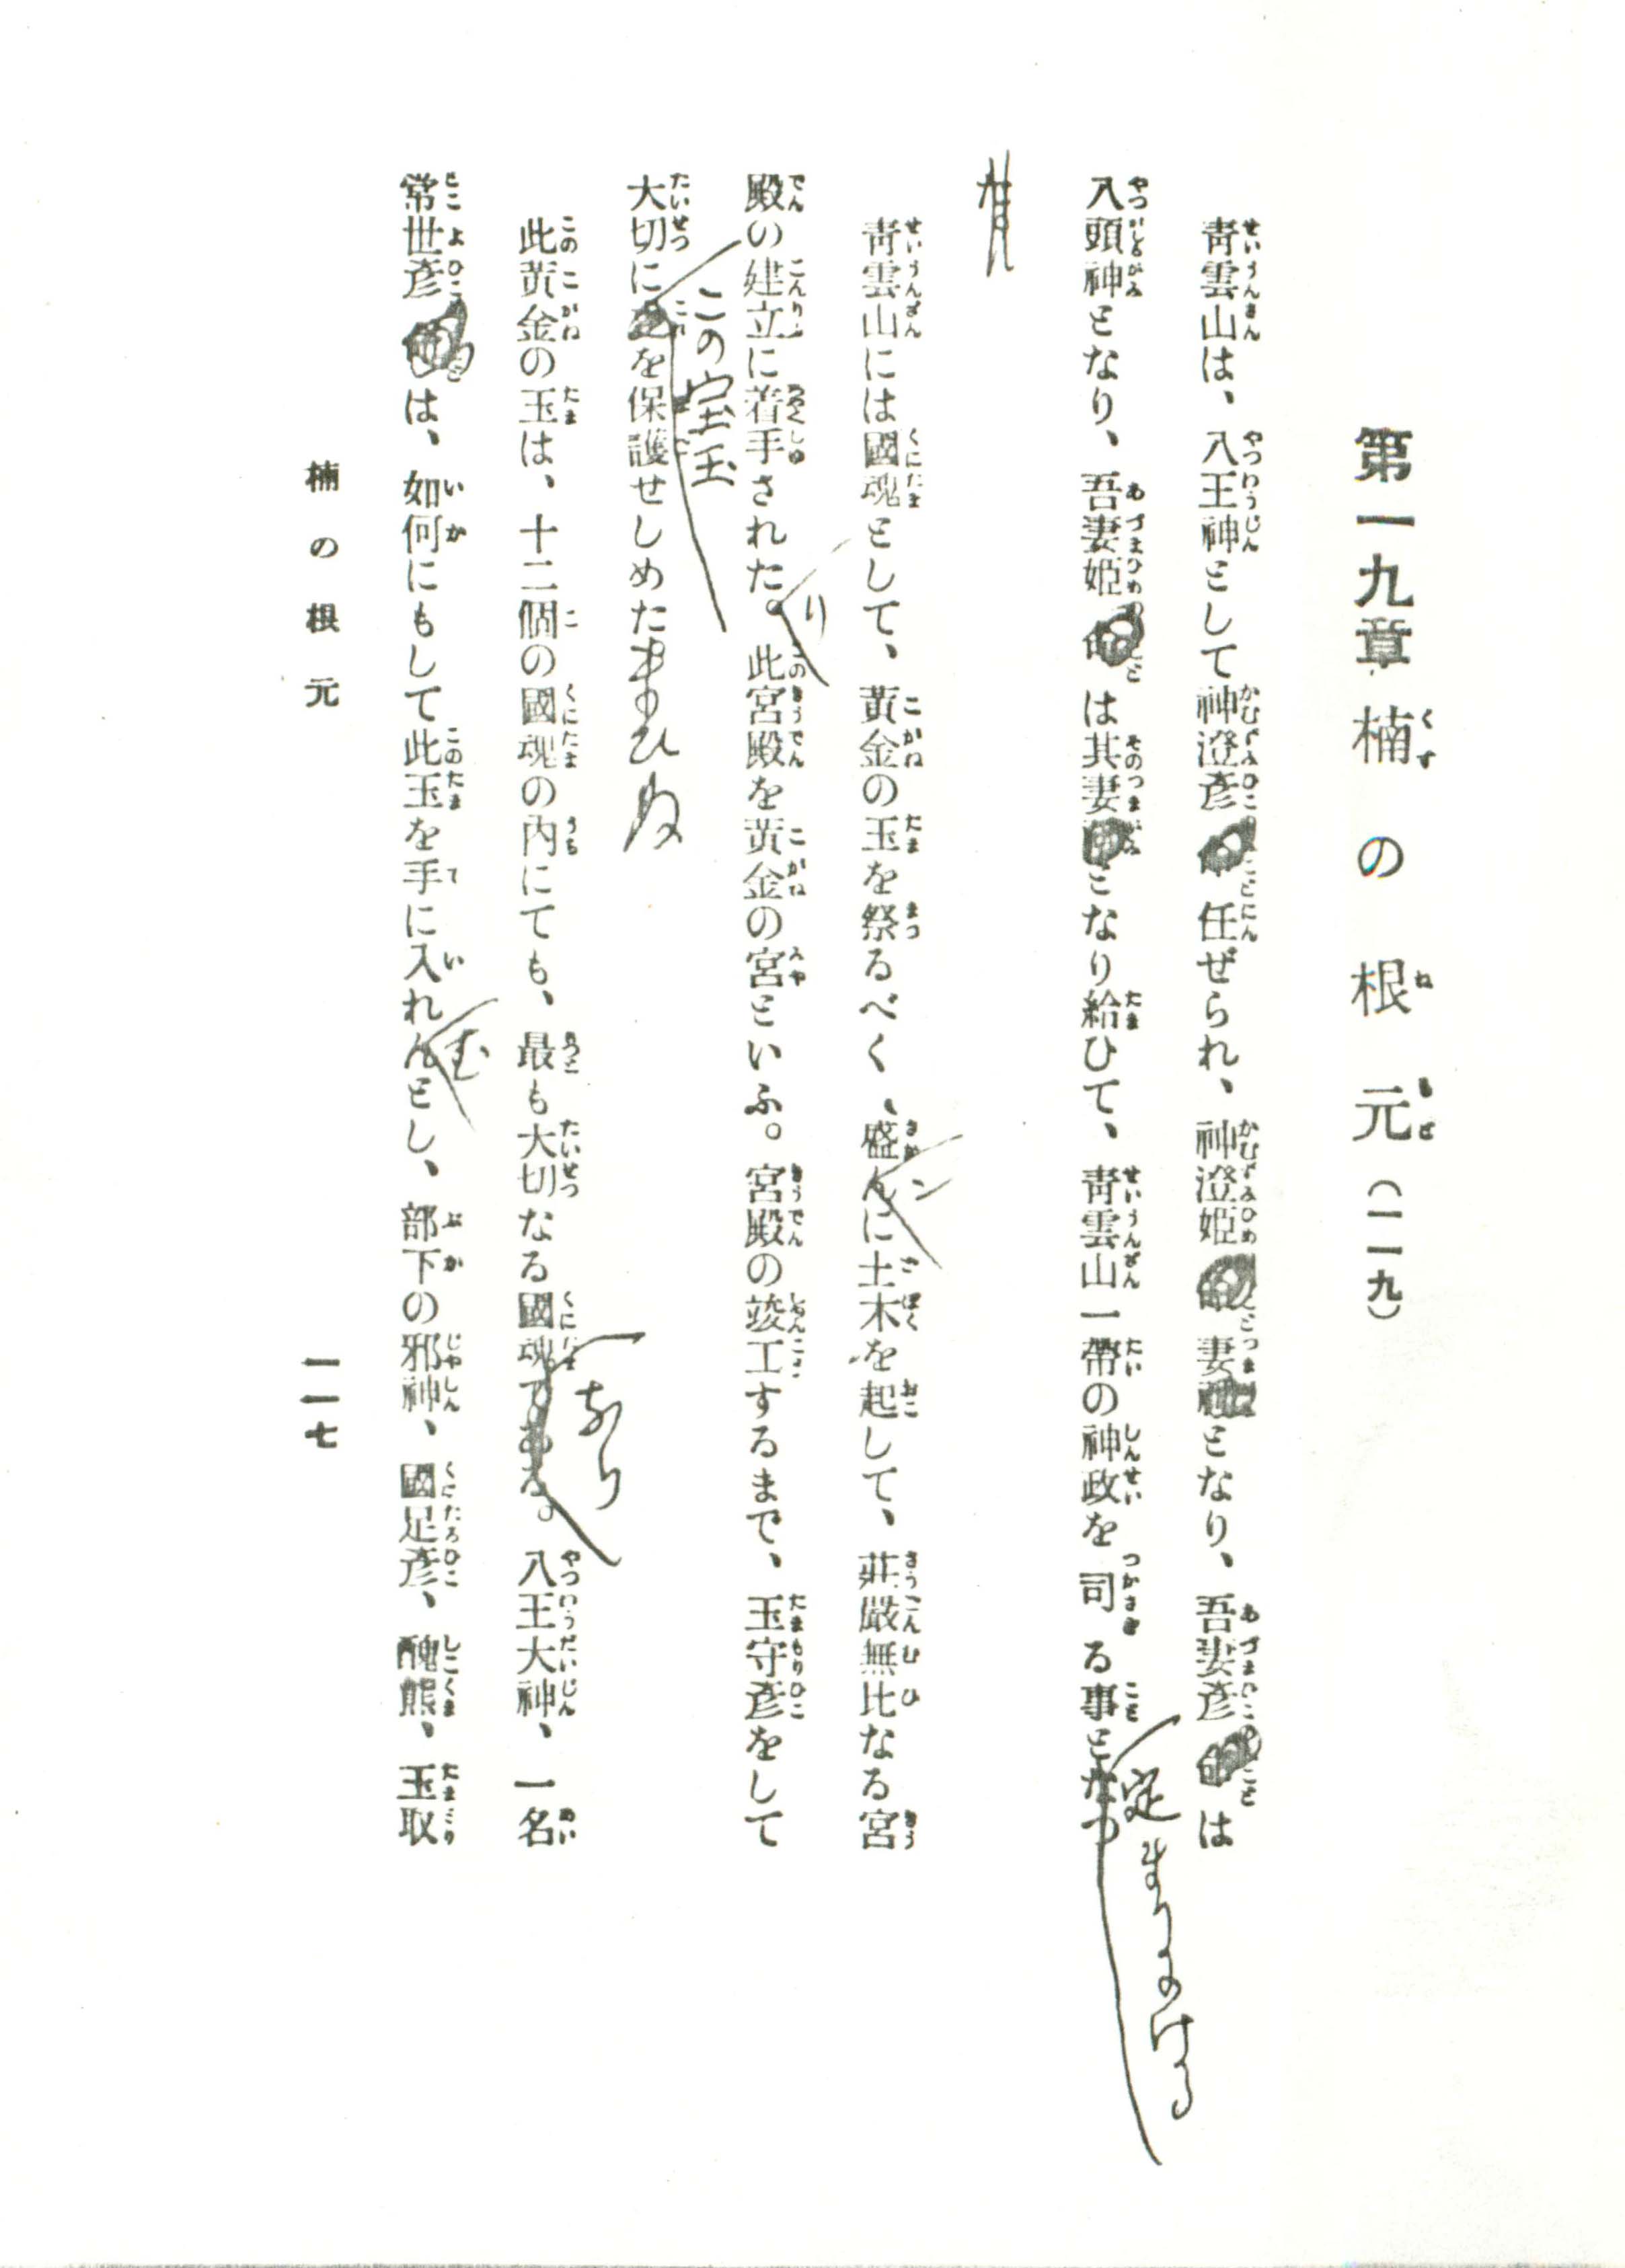 第一九章 楠の根元（一一九）
青雲山は、八王神として神澄彦命任ぜられ、神澄姫命妻神となり、吾妻彦命は
八頭神となり、吾妻姫命は其妻神となり給ひて、青雲山一帶の神政を司る事となつ
定まりにける
た。
青雲山には國魂として、黄金の玉を祭るべく、盛んに土木を起して、莊嚴無比なる宮
ン
殿の建立に着手された。此宮殿を黄金の宮といふ。宮殿の竣工するまで、玉守彦をして
り
この宝玉
大切に之を保護せしめた
まひぬ
此黄金の玉は、十二個の國魂の内にても、最も大切なる國魂である。八王大神、一名
なり
常世彦命は、如何にもして此玉を手に入れんとし、部下の邪神、國足彦、醜熊、玉取
む
楠の根元 一一七